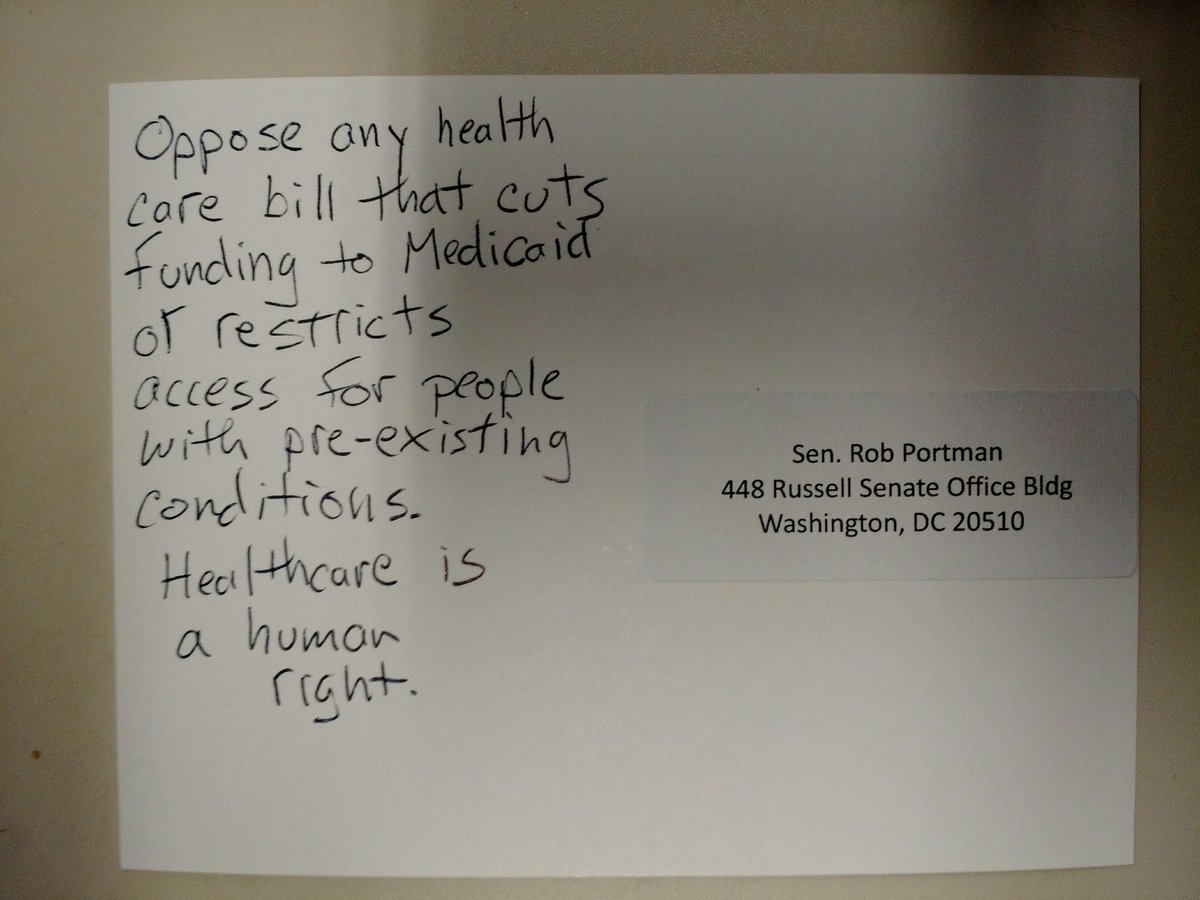 Oppose any health
care bill that cuts
funding to Medicaid
or restricts
access for people
with pre-existing
conditions.
Healthcare is
a human
right.
Sen. Rob Portman
448 Russell Senate Office Bldg
Washington, DC 20510